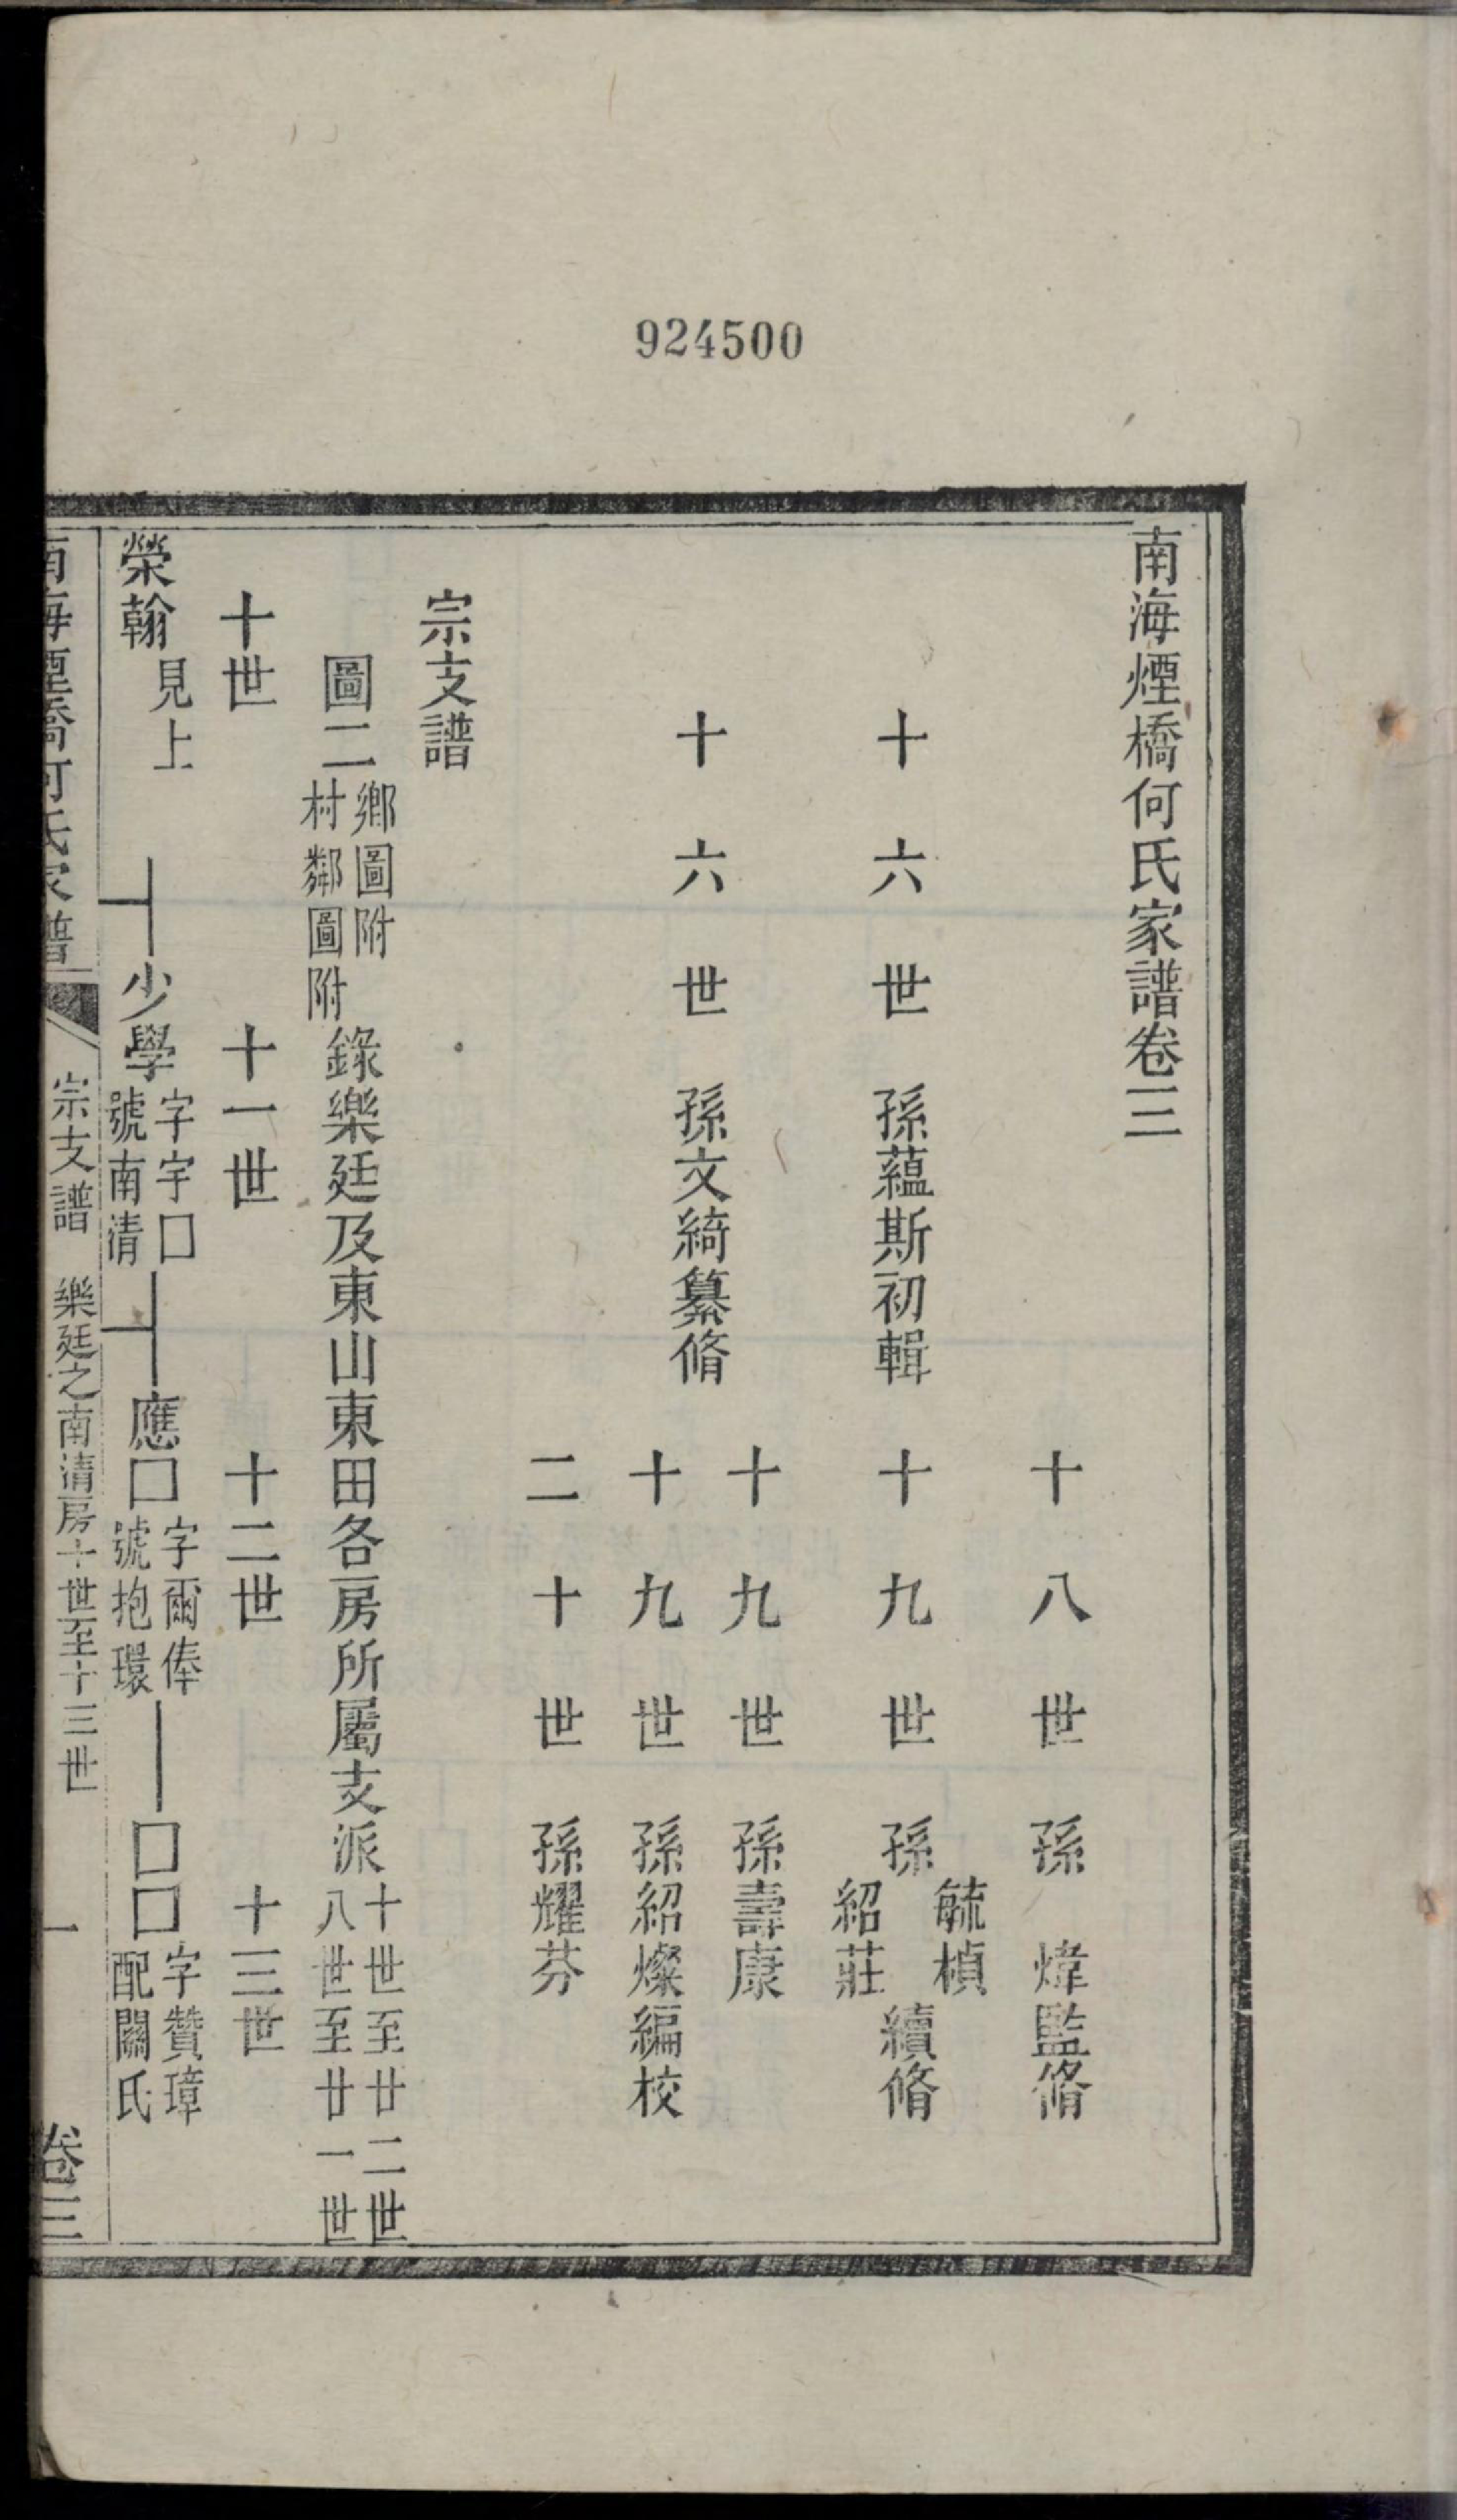 924500
南海煙橋何氏家譜卷三
十八世孫煒監脩
十六世孫蘊斯初輯
十九世孫毓楨紹莊續脩
十六世孫文綺纂脩
十九世孫壽康
十九世孫紹燦編校
二十世孫耀芬
宗支譜
圖二鄉圖附村鄰圖附錄樂廷及東山東田各房所屬支派十世至廿二世八世至廿一世
十世 十一世 十二世 十三世
榮翰見上 少學字宇囗號南清 應囗字爾俸號抱環 囗囗字贊璋配關氏
南海煙橋何氏家譜 宗支譜 樂廷之南清房十世至十三世 一 卷三